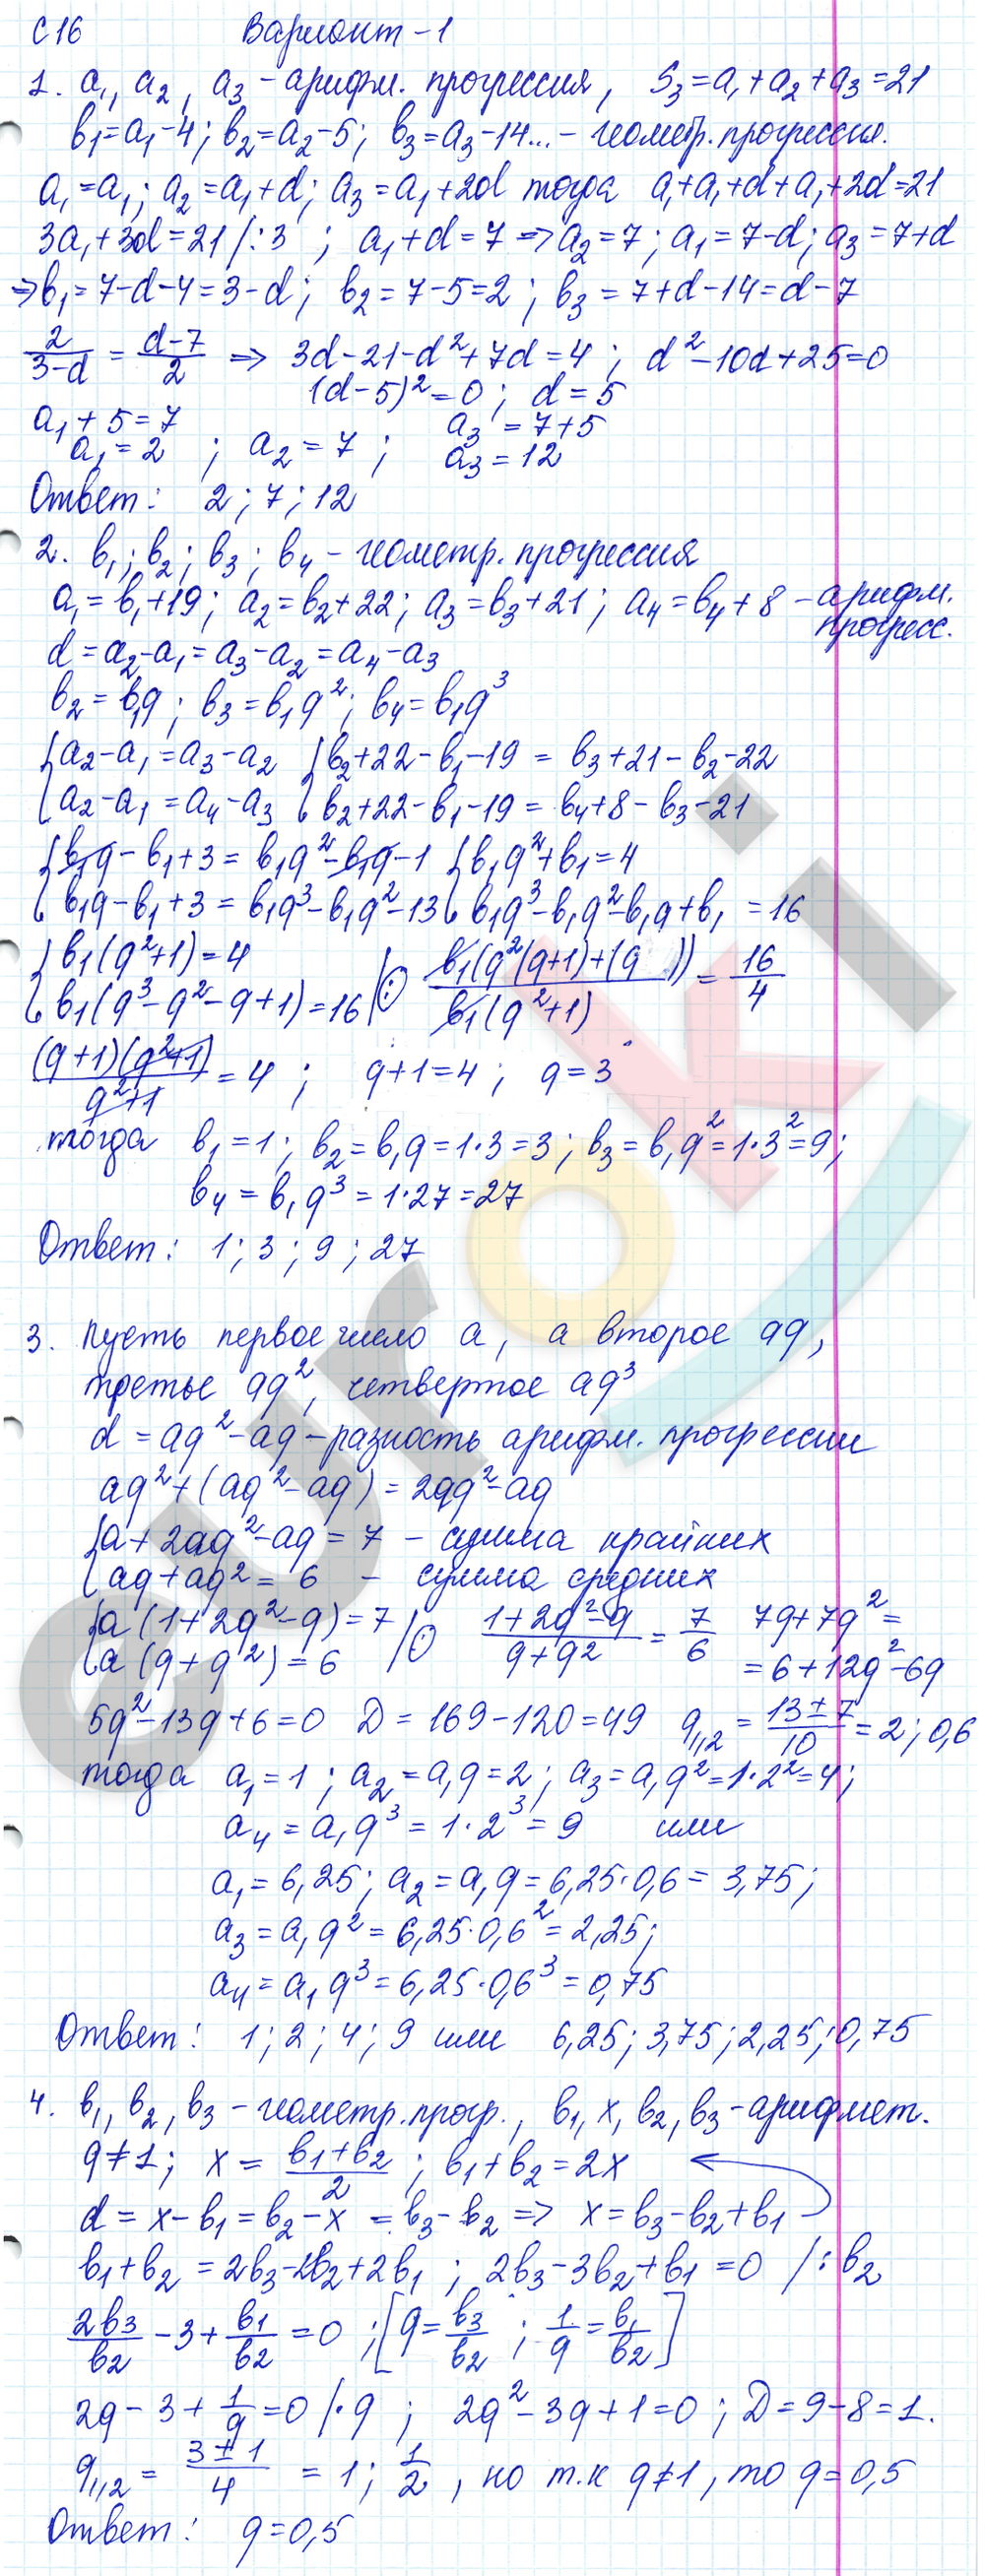 С16 Вариант-1
1. a₁, a₂, a₃ - арифм. прогрессия, S₃=a₁+a₂+a₃=21
b₁=a₁-4; b₂=a₂-5; b₃=a₃-14... - геометр. прогрессия.
a₁=a₁; a₂=a₁+d; a₃=a₁+2d тогда a₁+a₁+d+a₁+2d=21
3a₁+3d=21 /:3 ; a₁+d=7 => a₂=7; a₁=7-d; a₃=7+d
=> b₁=7-d-4=3-d; b₂=7-5=2; b₃=7+d-14=d-7
2/(3-d) = (d-7)/2 => 3d-21-d²+7d=4; d²-10d+25=0
(d-5)²=0; d=5
a₁+5=7 a₃=7+5
a₁=2 ; a₂=7 ; a₃=12
Ответ: 2; 7; 12
2. b₁; b₂; b₃; b₄ - геометр. прогрессия
a₁=b₁+19; a₂=b₂+22; a₃=b₃+21; a₄=b₄+8 - арифм.
прогресс.
d=a₂-a₁=a₃-a₂=a₄-a₃
b₂=b₁q; b₃=b₁q²; b₄=b₁q³
{a₂-a₁=a₃-a₂ {b₂+22-b₁-19=b₃+21-b₂-22
{a₂-a₁=a₄-a₃ {b₂+22-b₁-19=b₄+8-b₃-21
{b₁q-b₁+3=b₁q²-b₁q-1 {b₁q²+b₁=4
{b₁q-b₁+3=b₁q³-b₁q²-13 {b₁q³-b₁q²-b₁q+b₁=16
{b₁(q²+1)=4
{b₁(q³-q²-q+1)=16 | : b₁(q²(q+1)+(q ))/b₁(q²+1) = 16/4
(q+1)(q²+1)/(q²+1) = 4; q+1=4; q=3
тогда b₁=1; b₂=b₁q=1·3=3; b₃=b₁q²=1·3²=9;
b₄=b₁q³=1·27=27
Ответ: 1; 3; 9; 27
3. Пусть первое число a, а второе aq,
третье aq², четвертое aq³
d=aq²-aq - разность арифм. прогрессии
aq²+(aq²-aq)=2aq²-aq
{a+2aq²-aq=7 - сумма крайних
{aq+aq²=6 - сумма средних
{a(1+2q²-q)=7
{a(q+q²)=6 | : (1+2q²-q)/(q+q²) = 7/6 7q+7q²=
=6+12q²-6q
5q²-13q+6=0 D=169-120=49 q₁,₂=(13±7)/10=2; 0,6
тогда a₁=1; a₂=a₁q=2; a₃=a₁q²=1·2²=4;
a₄=a₁q³=1·2³=9 или
a₁=6,25; a₂=a₁q=6,25·0,6=3,75;
a₃=a₁q²=6,25·0,6²=2,25;
a₄=a₁q³=6,25·0,6³=0,75
Ответ: 1; 2; 4; 9 или 6,25; 3,75; 2,25; 0,75
4. b₁, b₂, b₃ - геометр. прогр., b₁, x, b₂, b₃ - арифмет.
q≠1; x=(b₁+b₂)/2; b₁+b₂=2x
d=x-b₁=b₂-x=b₃-b₂ => x=b₃-b₂+b₁
b₁+b₂=2b₃-2b₂+2b₁; 2b₃-3b₂+b₁=0 /:b₂
2b₃/b₂-3+b₁/b₂=0; [q=b₃/b₂; 1/q=b₁/b₂]
2q-3+1/q=0 /·q; 2q²-3q+1=0; D=9-8=1.
q₁,₂=(3±1)/4=1; 1/2, но т.к q≠1, то q=0,5
Ответ: q=0,5
euroki